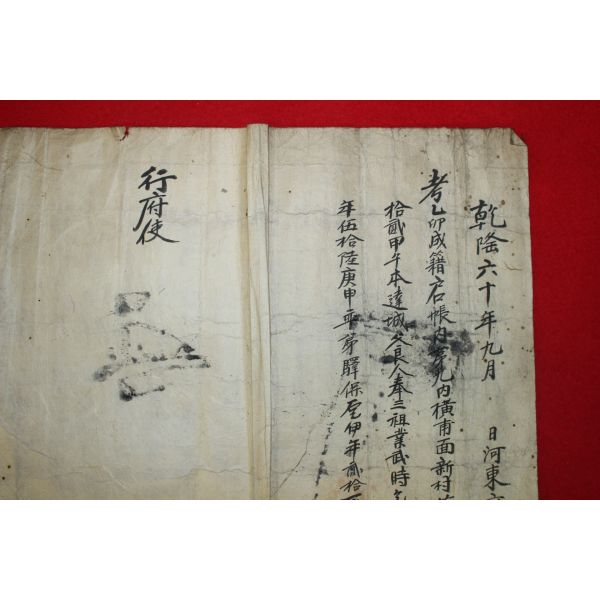 乾隆六十年九月 日河東
考乙卯成籍戶帳內 內橫甫面新村
拾貳甲午本達城父良人奉三祖業武時
年伍拾陸庚申 驛保 伊年貳拾
行府使